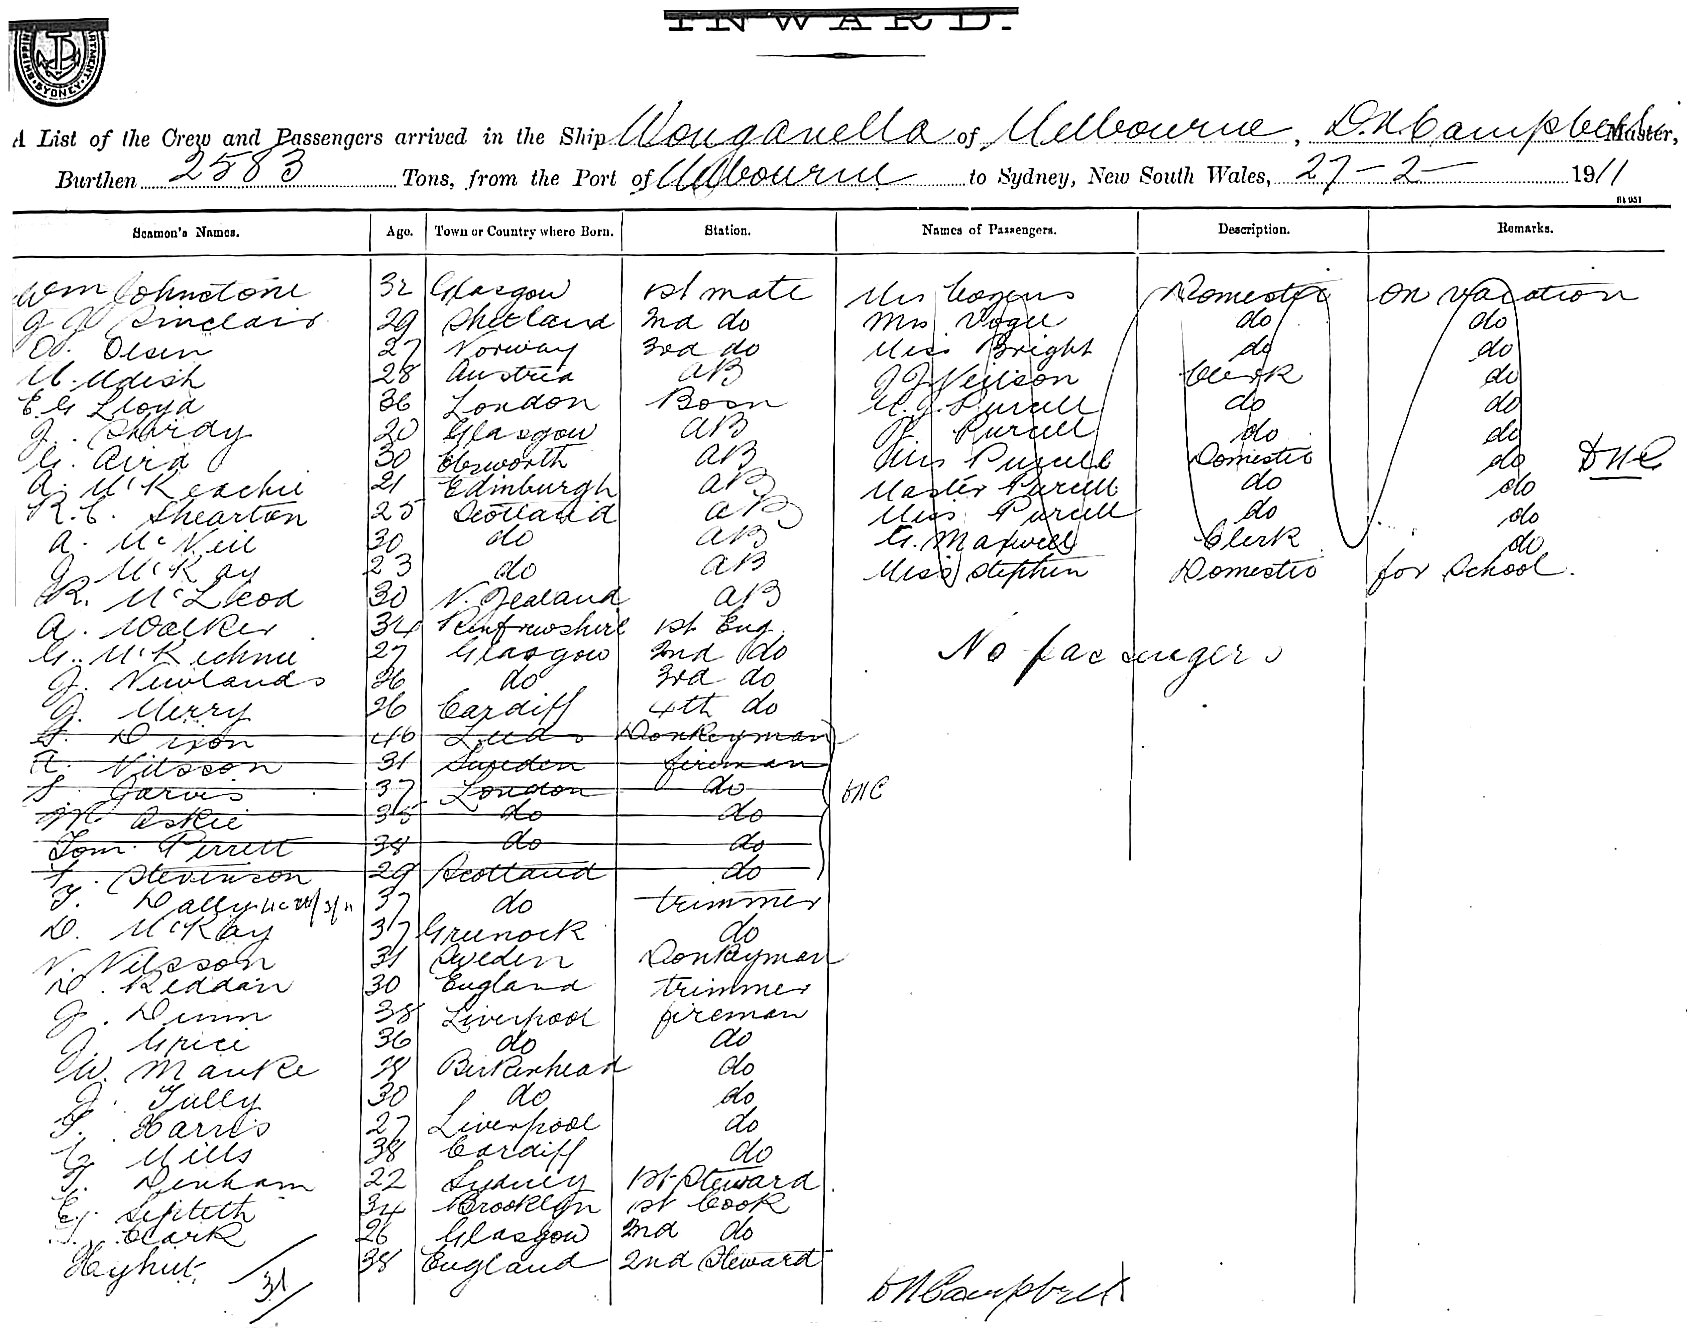 INWARD.
SHIPPING DEPARTMENT SYDNEY
A List of the Crew and Passengers arrived in the Ship Wonganella of Melbourne, D.N. Campbell Master,
Burthen 2583 Tons, from the Port of Melbourne to Sydney, New South Wales, 27-2- 1911
Seamen's Names. Age. Town or Country where Born. Station. Names of Passengers. Description. Remarks.
Wm Johnstone 32 Glasgow 1st mate Mrs Cozens Domestic on vacation
J J Sinclair 29 Shetland 2nd do Mrs Vogel do do
O. Olsen 27 Norway 3rd do Miss Bright do do
M. Udish 28 Austria AB J J Neilson Clerk do
E.G. Lloyd 36 London Bosn M. J. Purcell do do
J. Shardy 20 Glasgow AB P. Purcell do do
G. Aird 30 AB Mrs Purcell Domestic do DNC
A. McKeachie 21 Edinburgh AB Master Purcell do do
R.C. Shearton 25 Scotland AB Miss Purcell do do
A. McNeil 30 do AB G. Maxwell Clerk do
J. McKay 23 do AB Miss Stephen Domestic for School.
R. McLeod 30 N. Zealand AB
A. Walker 34 Renfrewshire 1st Eng.
G. McKechnie 27 Glasgow 2nd do No passengers
J. Newlands 26 do 3rd do
J. Merry 26 Cardiff 4th do
S. Dixon 46 Leeds Donkeyman
A. Nilsson 31 Sweden fireman
S. Jarvis 37 London do DNC
M. Askie 35 do do
Tom. Perrett 38 do do
S. Stevenson 29 Scotland do
T. Dally 37 do trimmer
D. McKay 37 Greenock do
N. Nilsson 31 Sweden Donkeyman
D. Keddan 30 England trimmer
J. Dunn 38 Liverpool fireman
J. Grice 36 do do
W. Manke 28 Birkenhead do
J. Tully 30 do do
T. Harris 27 Liverpool do
C. Mills 38 Cardiff do
T. Denham 22 Sydney 1st Steward
E. Septeth 34 Brooklyn 1st Cook
T. Clark 26 Glasgow 2nd do
Hyhut. 38 England 2nd Steward
31
DN Campbell